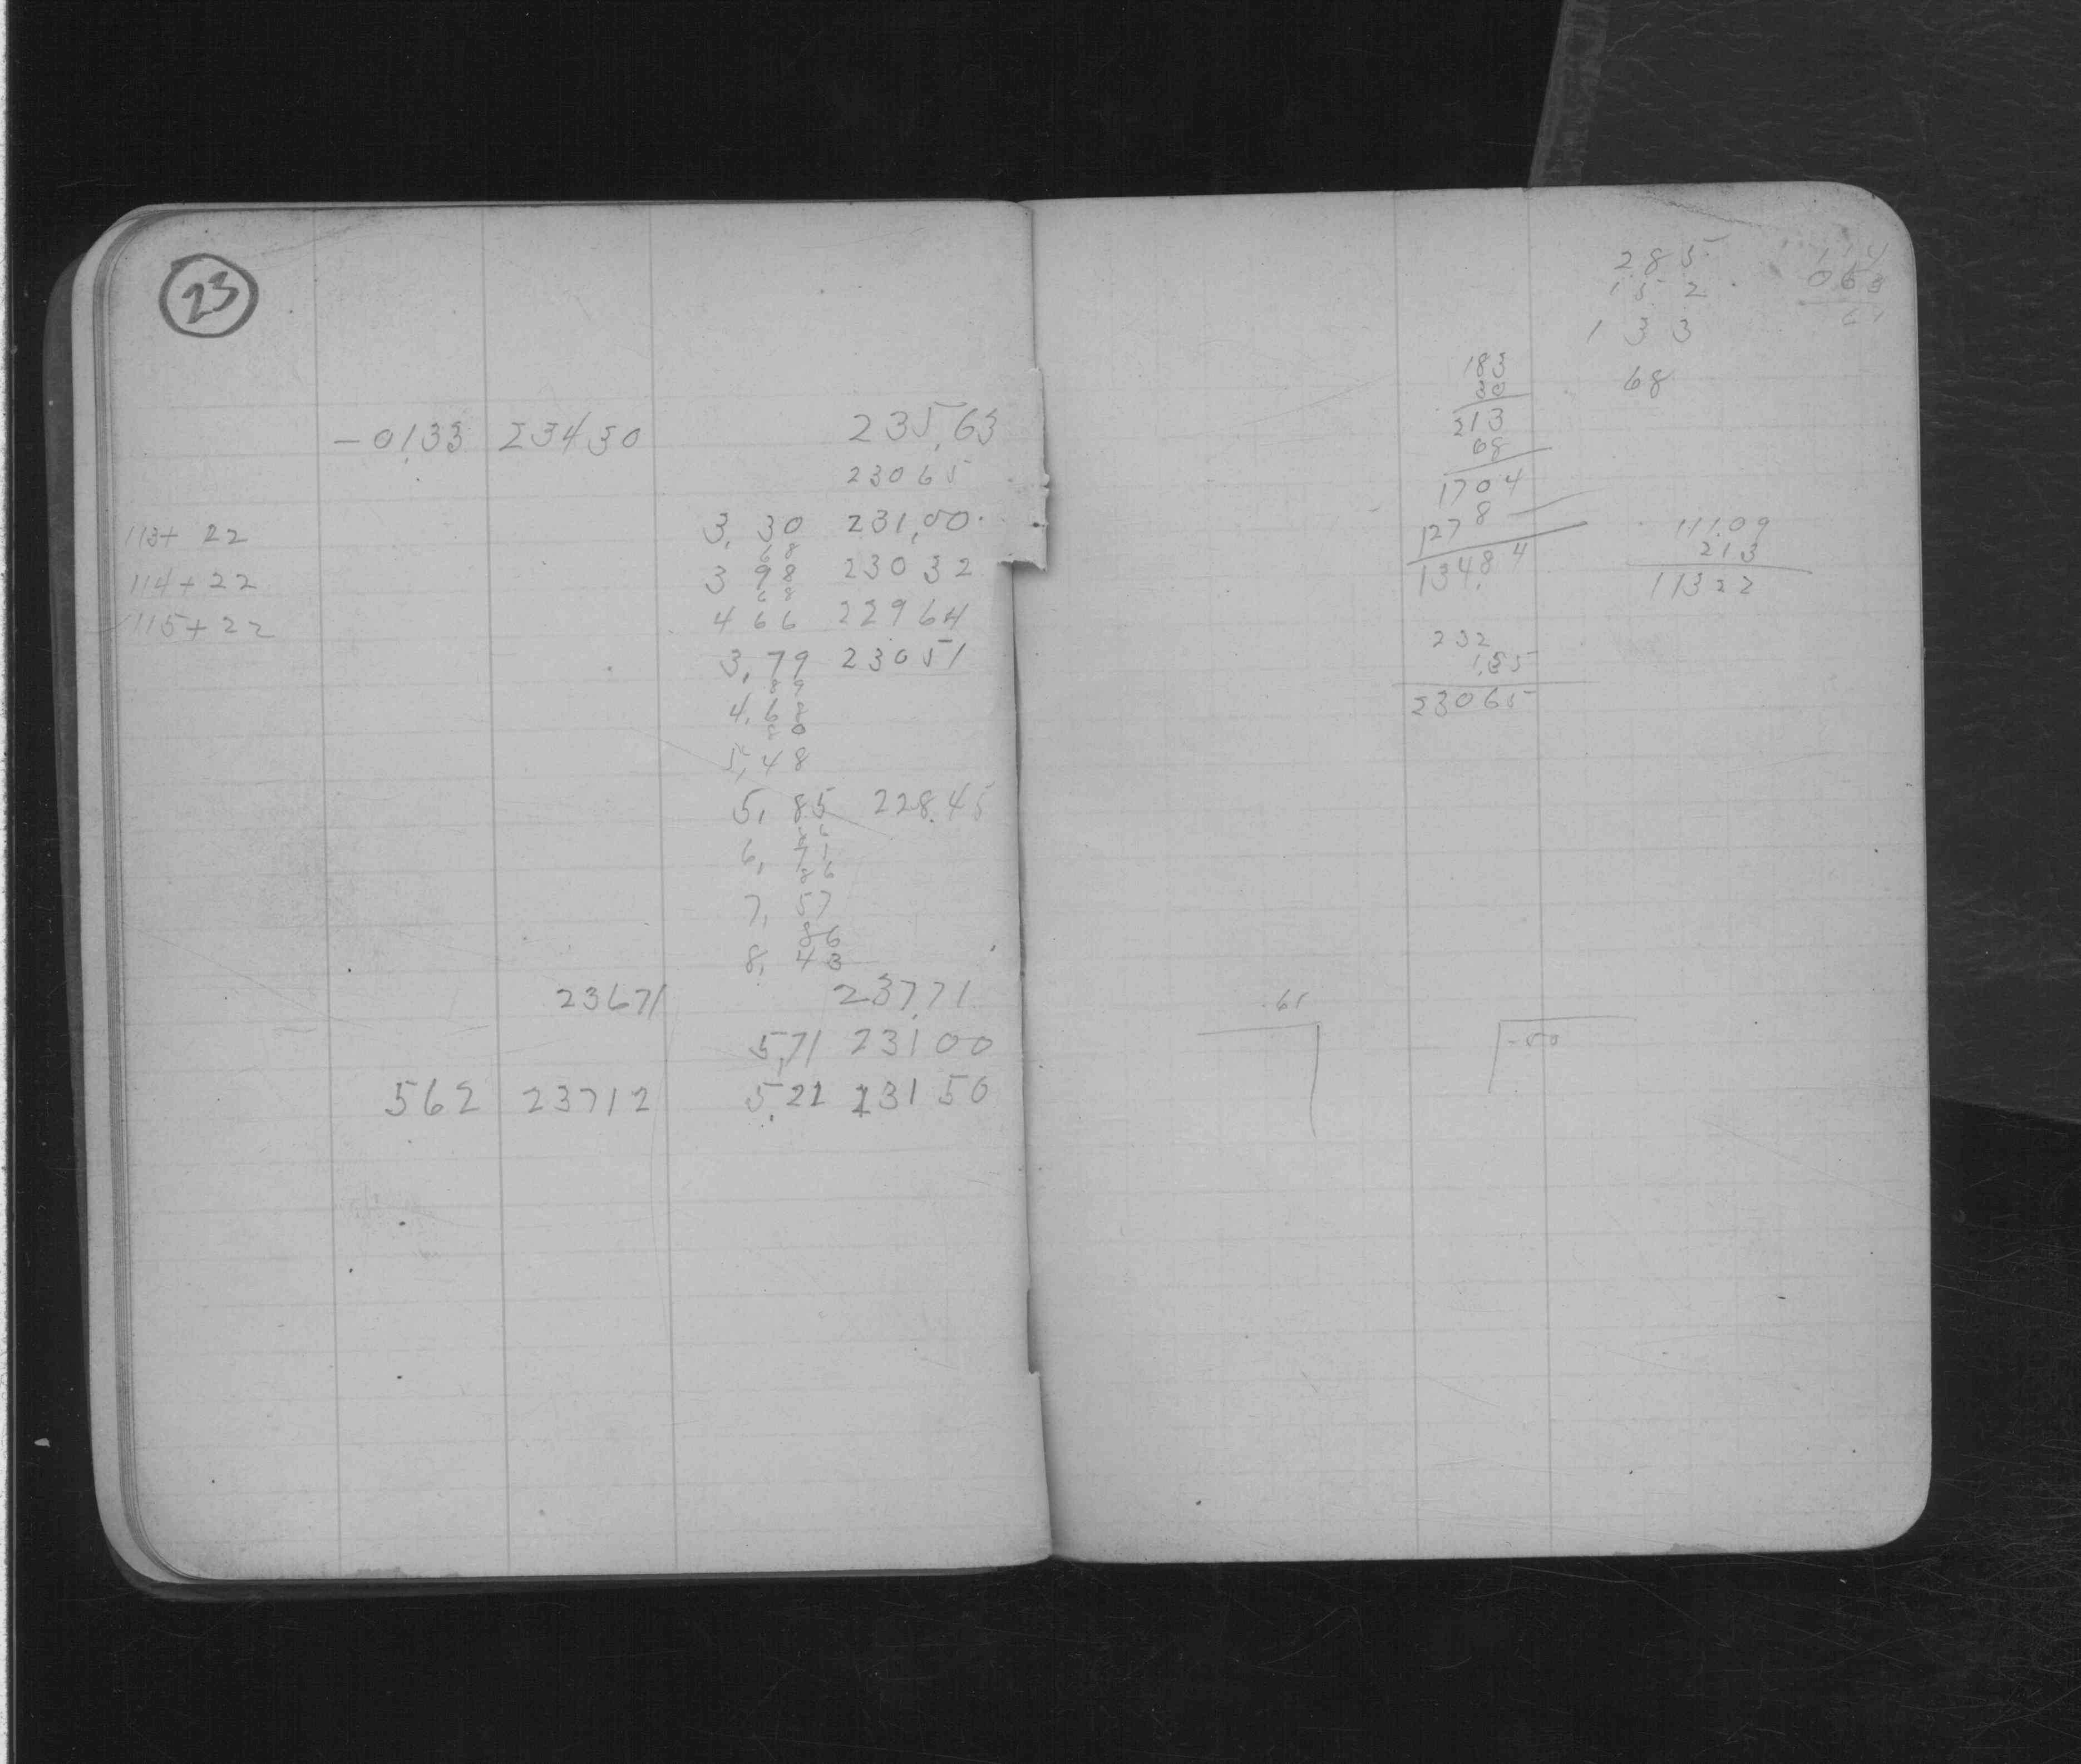 23
-01.33 23430 235.63
23065
113+ 22 3.30 231.00
68
114+22 3 98 23032
68
115+22 4 66 22964
3.79 23051
89
4.68
80
5.48
5.85 228.45
86
6.71
86
7.57
86
8.43
23671 237.71
5.71 23100
562 23712 5.21 23150
285
152
133
68
063
183
30
213
68
1704
8
1278
134.84
111.09
213
11322
232
1.35
23065
.61
-50